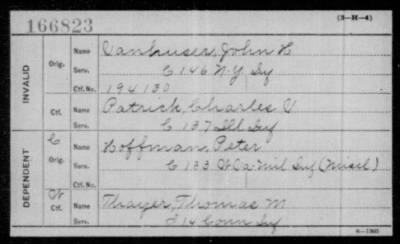 166823
(3-H-4)
INVALID
Orig.
Name Vanhuser, John H
Serv. C 146 N.Y. Inf
Ctf. No. 194130
Ctf.
Name Patrick, Charles V
Serv. C 137 Ill Inf
DEPENDENT
C
Orig.
Name Hoffman, Peter
Serv. C 133 Mil Inf
Ctf.
Name Thayer, Thomas M
Serv. 14 Conn Inf